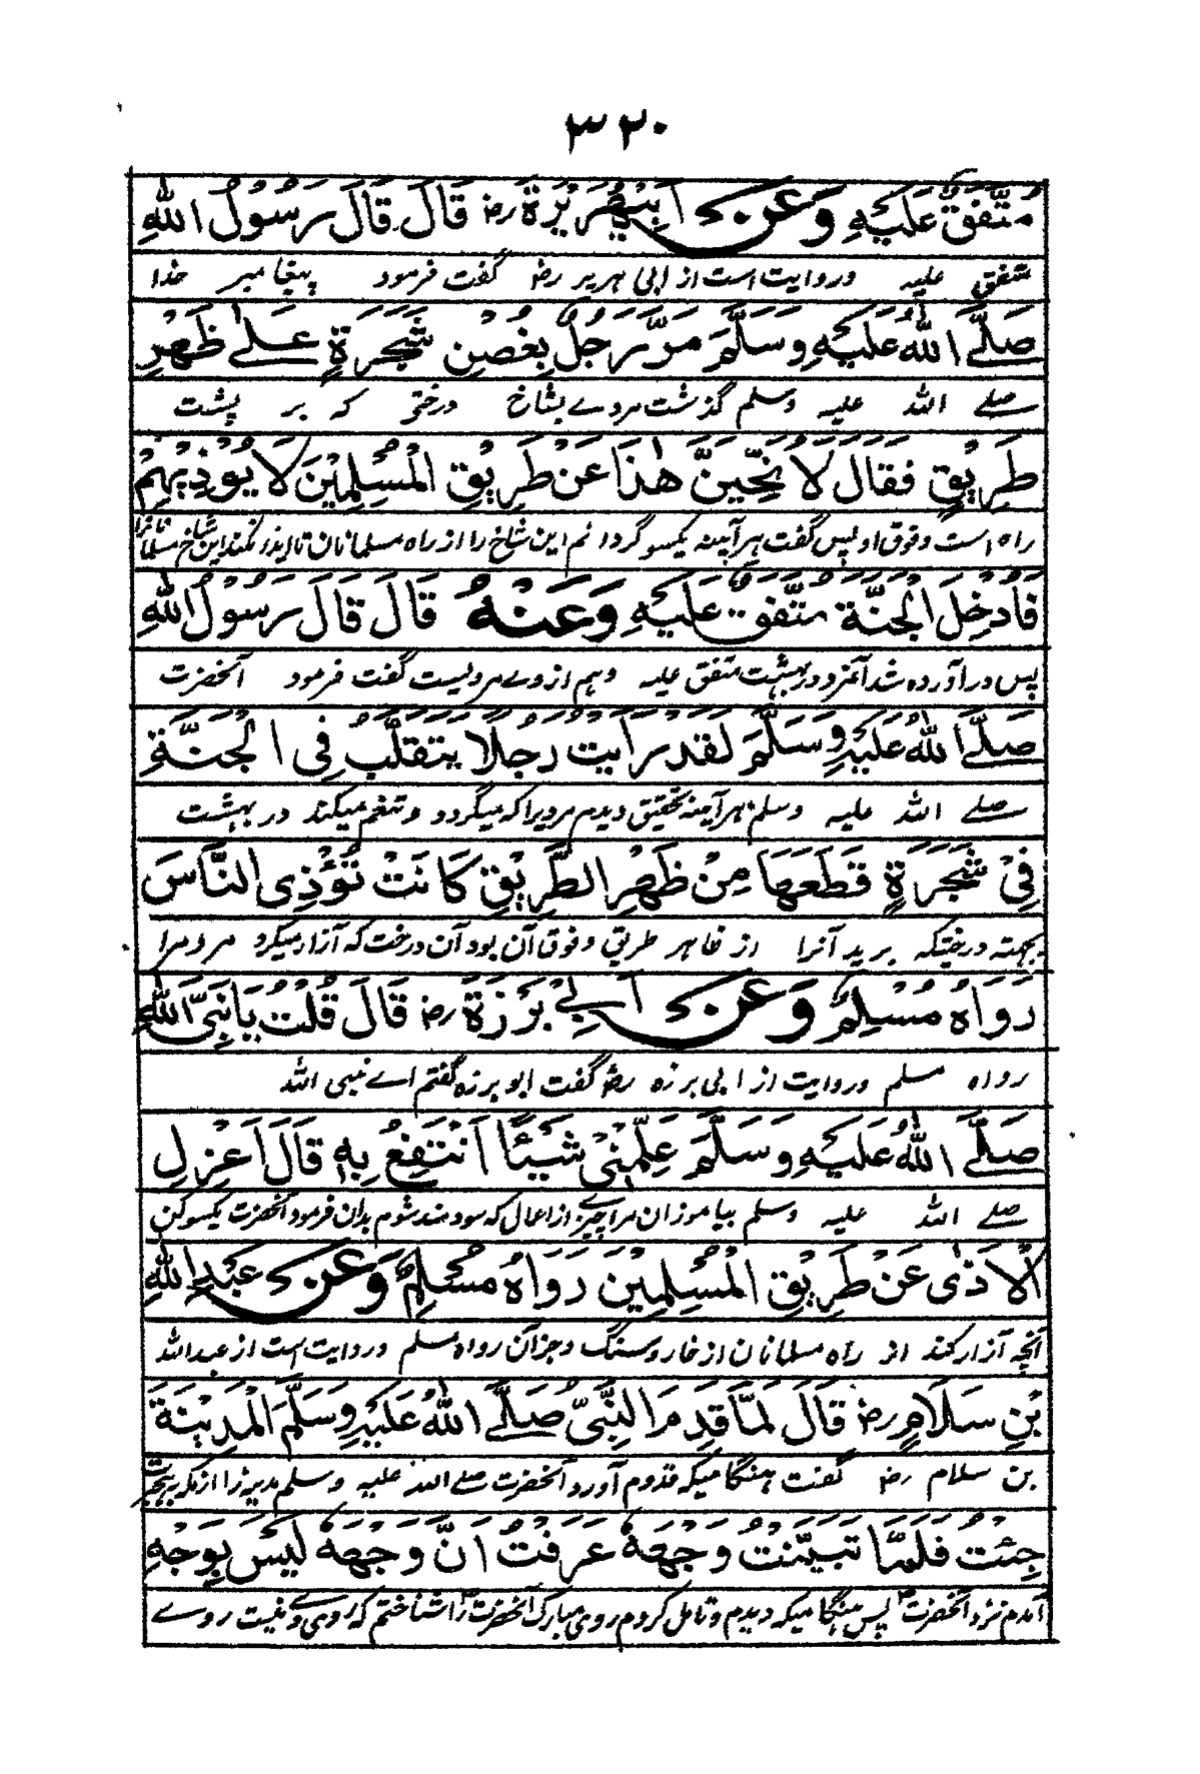 ۳۲۰
مُتَّفَقٌ عَلَيْهِ وَعَنْ اَبِيْ هُرَيْرَةَ رض قَالَ قَالَ رَسُوْلُ اللهِ
متفق علیہ وروایت است از ابی ہریر رض گفت فرمود پیغامبر خدا
صَلَّے اللهُ عَلَيْهِ وَسَلَّمَ مَرَّ رَجُلٌ بِغُصْنِ شَجَرَةٍ عَلٰے ظَهْرِ
صلے اللہ علیہ وسلم گذشت مردے بشاخ درختی کہ بر پشت
طَرِيْقٍ فَقَالَ لَاُنَحِّيَنَّ هٰذَا عَنْ طَرِيْقِ الْمُسْلِمِيْنَ لَا يُؤْذِيْهِمْ
راہ است وفوق او پس گفت ہر آیینہ یکسو گردانم این شاخ را از راہ مسلمانان تا ایذا نکند این شاخ مسلمانانرا
فَاُدْخِلَ الْجَنَّةَ مُتَّفَقٌ عَلَيْهِ وَعَنْهُ قَالَ قَالَ رَسُوْلُ اللهِ
پس در آوردہ شد آنمرد در بہشت متفق علیہ وہم از وے مرویست گفت فرمود آنحضرت
صَلَّے اللهُ عَلَيْهِ وَسَلَّمَ لَقَدْ رَاَيْتُ رَجُلًا يَتَقَلَّبُ فِى الْجَنَّةِ
صلے اللہ علیہ وسلم ہر آینہ تحقیق دیدم مردیرا کہ میگردد و تنعم میکند در بہشت
فِىْ شَجَرَةٍ قَطَعَهَا مِنْ ظَهْرِ الطَّرِيْقِ كَانَتْ تُؤْذِى النَّاسَ
بجہتہ درختیکہ برید آنرا از ظاہر طریق وفوق آن بود آن درخت کہ آزار میکرد مردمرا
رَوَاهُ مُسْلِمٌ وَعَنْ اَبِىْ بَرْزَةَ رض قَالَ قُلْتُ يَا نَبِىَّ اللهِ
رواہ مسلم وروایت از ابی برزہ رض گفت ابو برزہ گفتم اے نبی اللہ
صَلَّے اللهُ عَلَيْهِ وَسَلَّمَ عَلِّمْنِىْ شَيْئًا اَنْتَفِعُ بِهٖ قَالَ اَعْزِلِ
صلے اللہ علیہ وسلم بیاموزان مرا چیزے از اعمال کہ سودمند شوم بدان فرمود آنحضرت یکسو کن
الْاَذٰى عَنْ طَرِيْقِ الْمُسْلِمِيْنَ رَوَاهُ مُسْلِمٌ وَعَنْ عَبْدِ اللهِ
آنچہ آزار کند از راہ مسلمانان از خار وسنگ وجز آن رواہ مسلم وروایت است از عبد اللہ
بْنِ سَلَامٍ رض قَالَ لَمَّا قَدِمَ النَّبِىُّ صَلَّے اللهُ عَلَيْهِ وَسَلَّمَ الْمَدِيْنَةَ
بن سلام رض گفت ہنگامیکہ قدوم آورد آنحضرت صلے اللہ علیہ وسلم مدینہ را از مکہ بہجرت
جِئْتُ فَلَمَّا تَبَيَّنْتُ وَجْهَهٗ عَرَفْتُ اَنَّ وَجْهَهٗ لَيْسَ بِوَجْهِ
آمدم نزد آنحضرت پس ہنگامیکہ دیدم وتامل کردم روی مبارک آنحضرت را شناختم کہ روی وے نیست روے